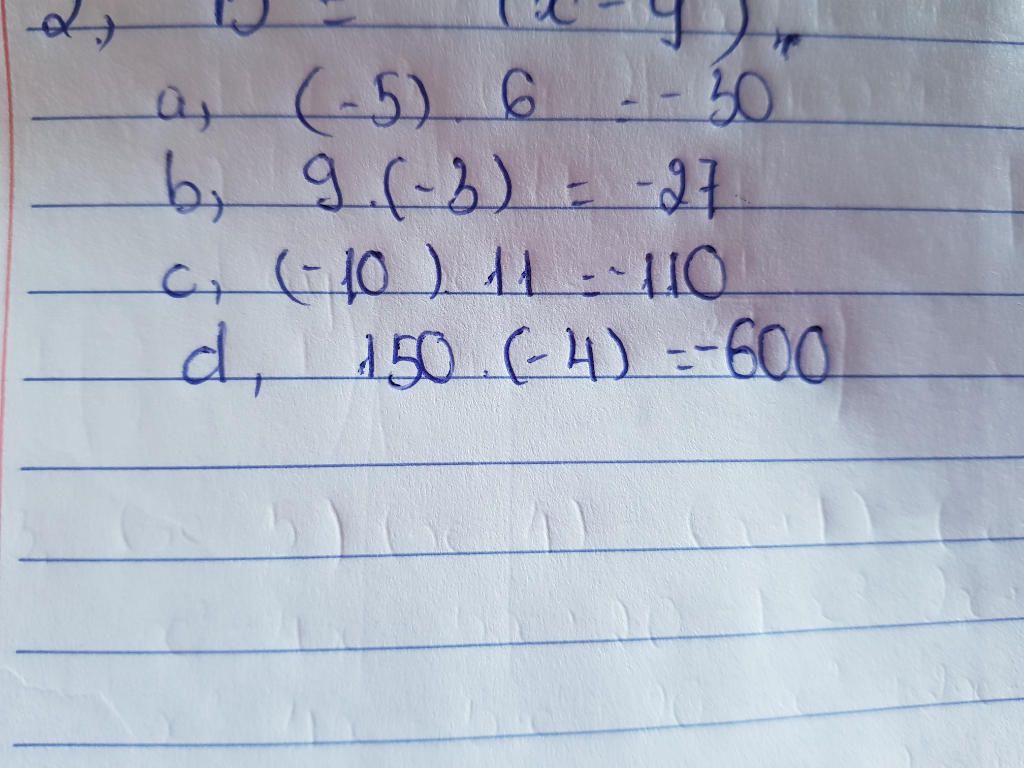 2,) = (x-y)
a, (-5). 6 = -30
b, 9.(-3) = -27
c, (-10). 11 = -110
d, 150.(-4) = -600